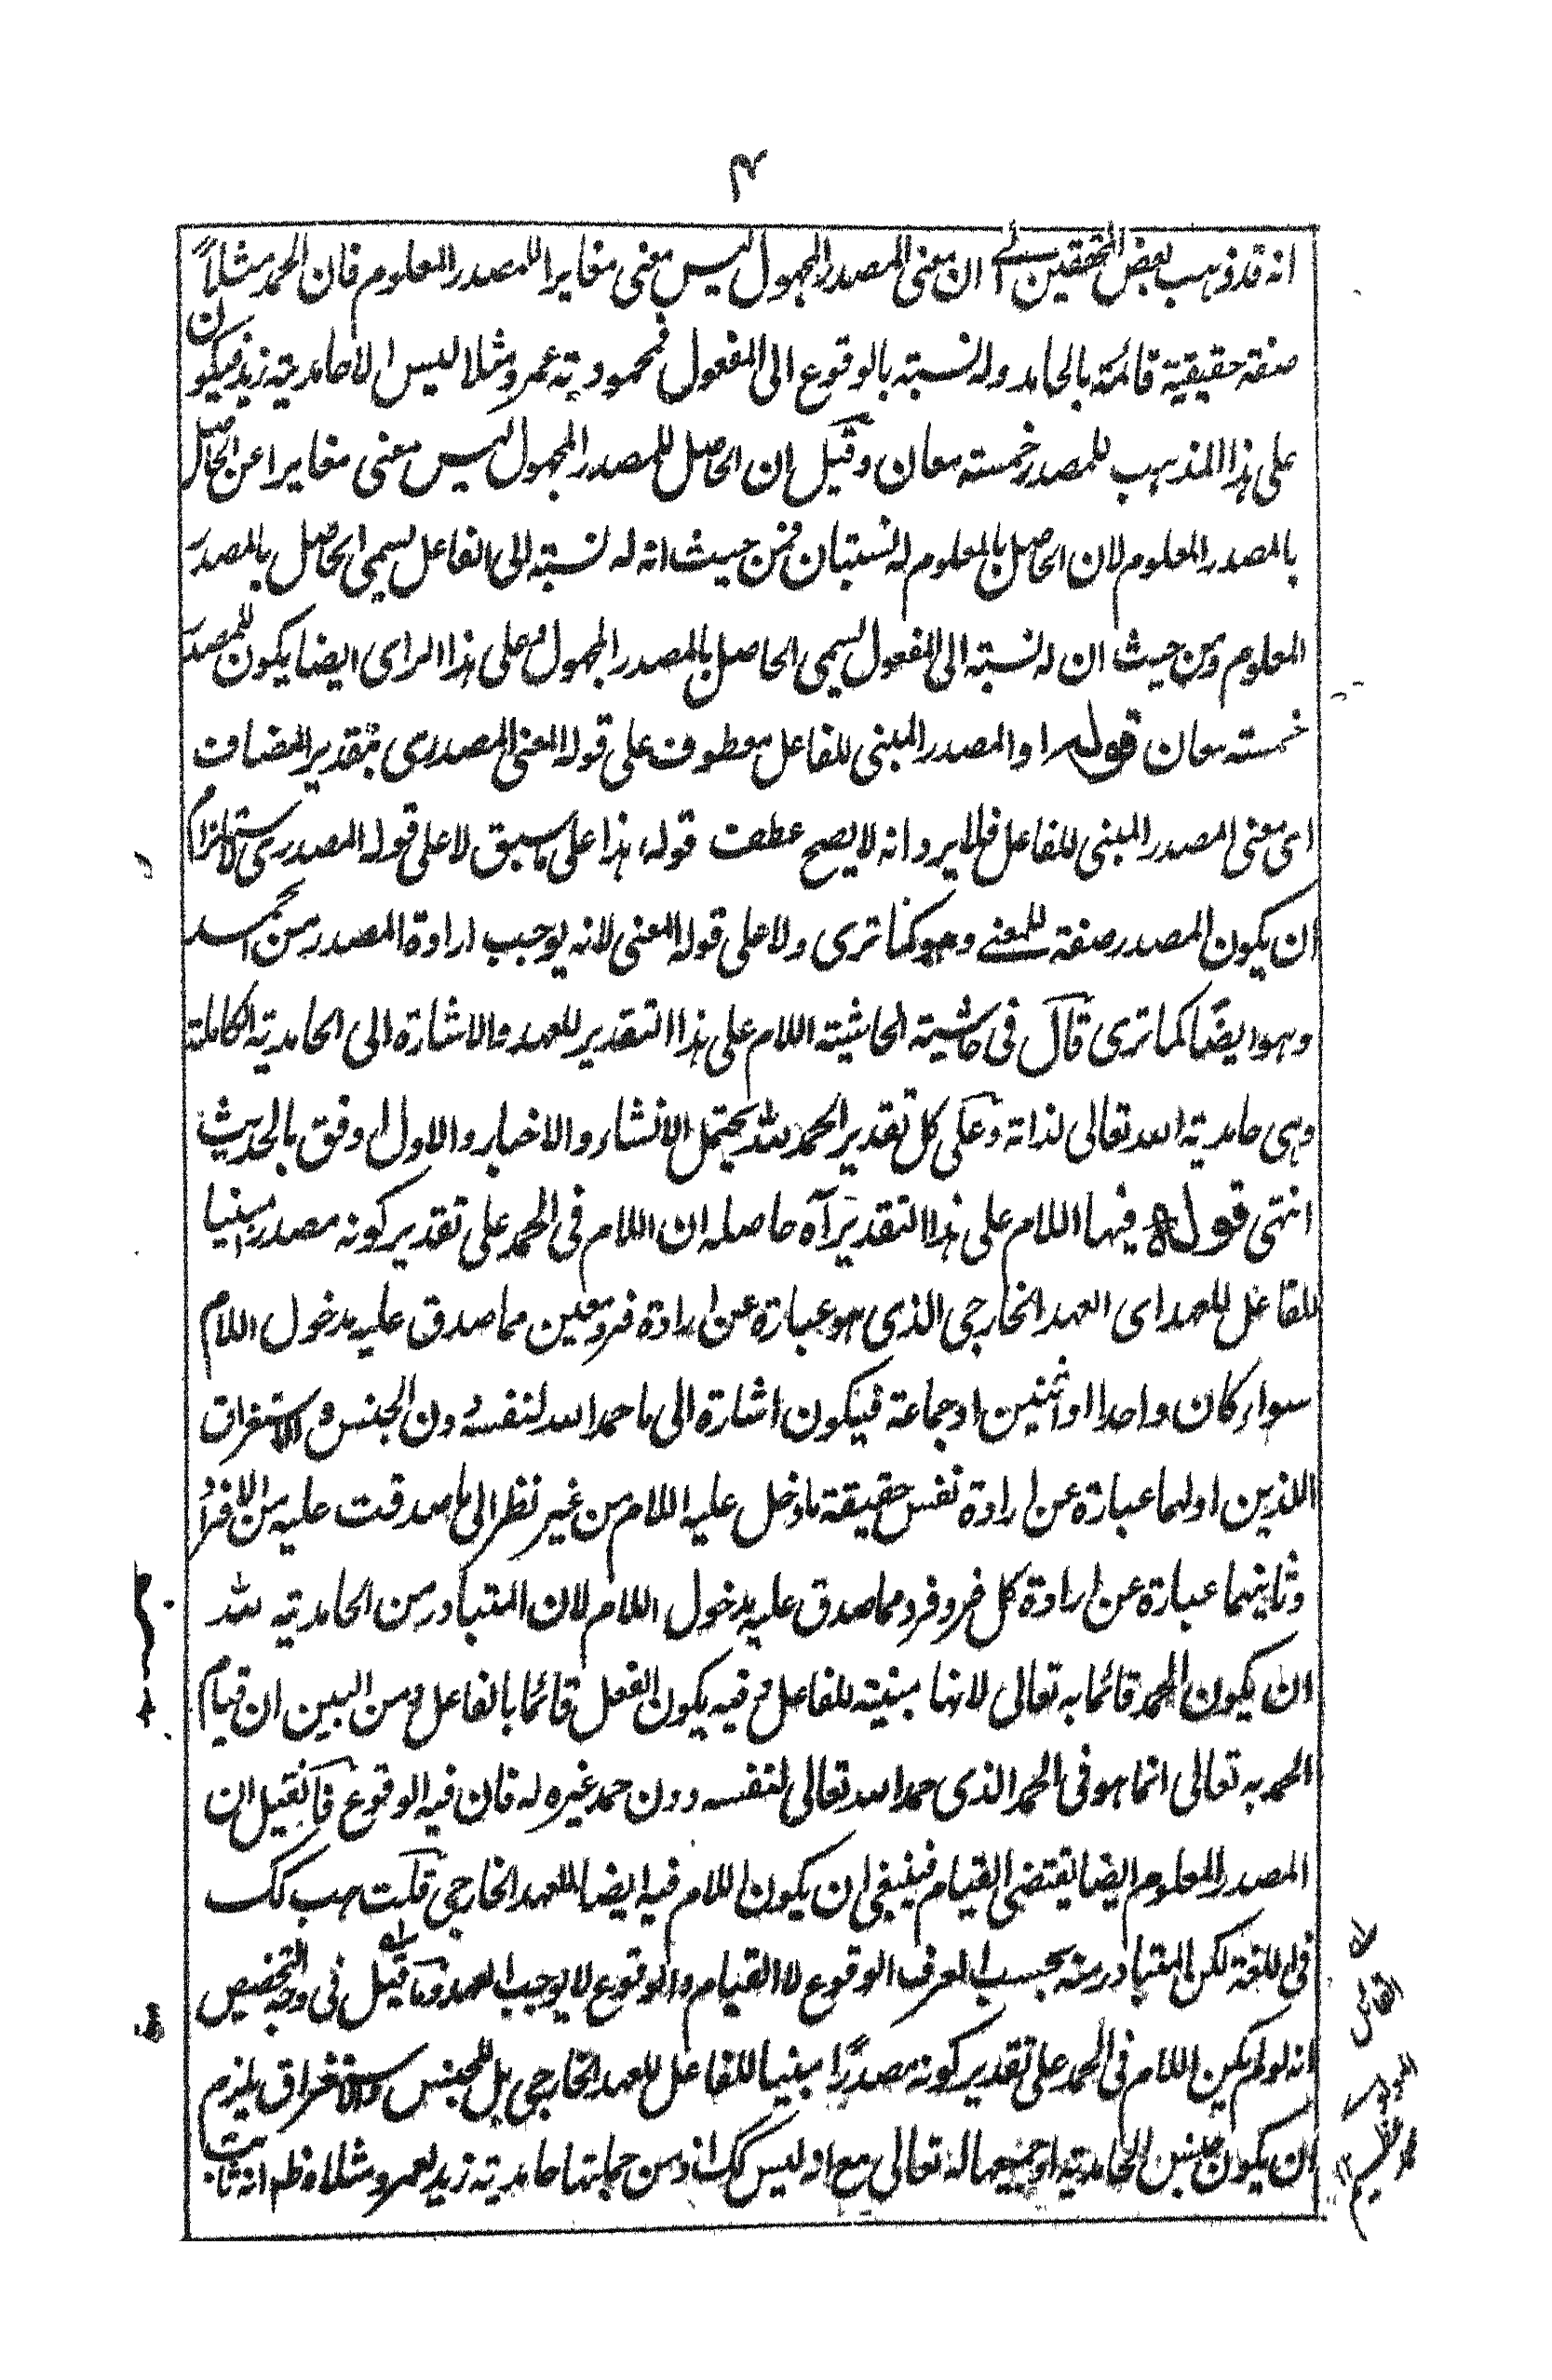 ۴
انه قد ذهب بعض المحققين الى ان معنى المصدر المجهول ليس معنى مغايرا للمصدر المعلوم فان الحمد مثلاً
صفة حقيقية قائمة بالحامد وله نسبة بالوقوع الى المفعول فمحمودية عمرو مثلا ليس الا حامدية زيد فيكون
على هذا المذهب للمصدر خمسة معان وقيل ان الحاصل للمصدر المجهول ليس معنى مغايرا عن الحاصل
بالمصدر المعلوم لان الحاصل بالمعلوم له نسبتان فمن حيث انه له نسبة الى الفاعل يسمى الحاصل بالمصدر
المعلوم ومن حيث ان له نسبة الى المفعول يسمى الحاصل بالمصدر المجهول وعلى هذا الراى ايضا يكون للمصدر
خمسة معان قوله او المصدر المبنى للفاعل معطوف على قوله المعنى المصدرى بتقدير المضاف
اى معنى المصدر المبنى للفاعل فلا يرد انه لا يصح عطف قوله هذا على ما سبق لا على قوله المصدرى لاستلزام
ان يكون المصدر صفة للمعنى وهو كما ترى ولا على قوله المعنى لانه يوجب ارادة المصدر من الحمد
وهو ايضًا كما ترى قال فى حاشية الحاشية اللام على هذا التقدير للعهد والاشارة الى الحامدية الكاملة
وهى حامدية الله تعالى لذاته وعلى كل تقدير الحمد لله يحتمل الانشاء والاخبار والاول اوفق بالحديث
انتهى قوله فيها اللام على هذا التقدير آه حاصله ان اللام فى الحمد على تقدير كونه مصدر مبنيا
للفاعل للعهد اى العهد الخارجى الذى هو عبارة عن ارادة فرد معين مما صدق عليه مدخول اللام
سواء كان واحدا او اثنين او جماعة فيكون اشارة الى ما حمد الله لنفسه دون الجنس والاستغراق
اللذين اولهما عبارة عن ارادة نفس حقيقة ما دخل عليه اللام من غير نظر الى ما صدقت عليه من الافراد
وثانيهما عبارة عن ارادة كل فرد فرد مما صدق عليه مدخول اللام لان المتبادر من الحامدية لله
ان يكون الحمد قائما به تعالى لانها مبنية للفاعل وفيه يكون الفعل قائما بالفاعل ومن البين ان قيام
الحمد به تعالى انما هو فى الحمد الذى حمد الله تعالى لنفسه دون حمد غيره له فان فيه الوقوع فان قيل ان
المصدر المعلوم ايضا يقتضى القيام فينبغى ان يكون اللام فيه ايضا للعهد الخارجى قلت هب كك
فى اللغة لكن المتبادر منه بحسب العرف الوقوع لا القيام والوقوع لا يوجب العهد وما قيل فى وجه التخصيص
انه لو لم يكن اللام فى الحمد على تقدير كونه مصدرًا مبنيا للفاعل للعهد الخارجى بل للجنس والاستغراق يلزم
ان يكون جنس الحامدية او جميعها له تعالى مع انه ليس كك اذ من جملتها حامدية زيد لعمرو مثلا وظ انه ثابت